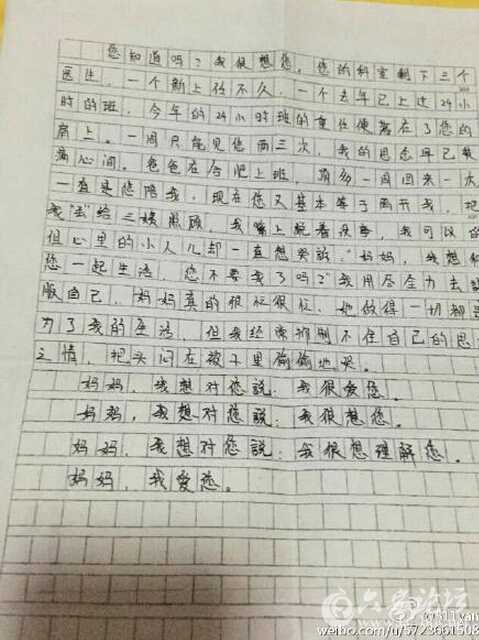 您知道吗？我很想您。您的科室剩下三个
医生，一个新上任不久，一个去年已上过24小
时的班，今年的24小时班的重任便落在了您的
肩上。一周只能见您两三次，我的思念早已载
满心间。爸爸在合肥上班，顶多一周回来一次
一直是您陪我，现在您又基本等于离开我，把
我"丢"给三姨照顾，我嘴上说着没事，我可以的
但心里的小人儿却一直想哭诉："妈妈，我想和
您一起生活，您不要我了吗？"我用尽全力去说
服自己，妈妈真的很忙很忙，她做得一切都是
为了我的生活，但我经常抑制不住自己的思
之情，把头闷在被子里偷偷地哭。
妈妈，我想对您說：我很爱您。
妈妈，我想对您說：我很想您。
妈妈，我想对您說：我很想理解您。
妈妈，我爱您。
六安论坛
weibo.com/u/5723661508